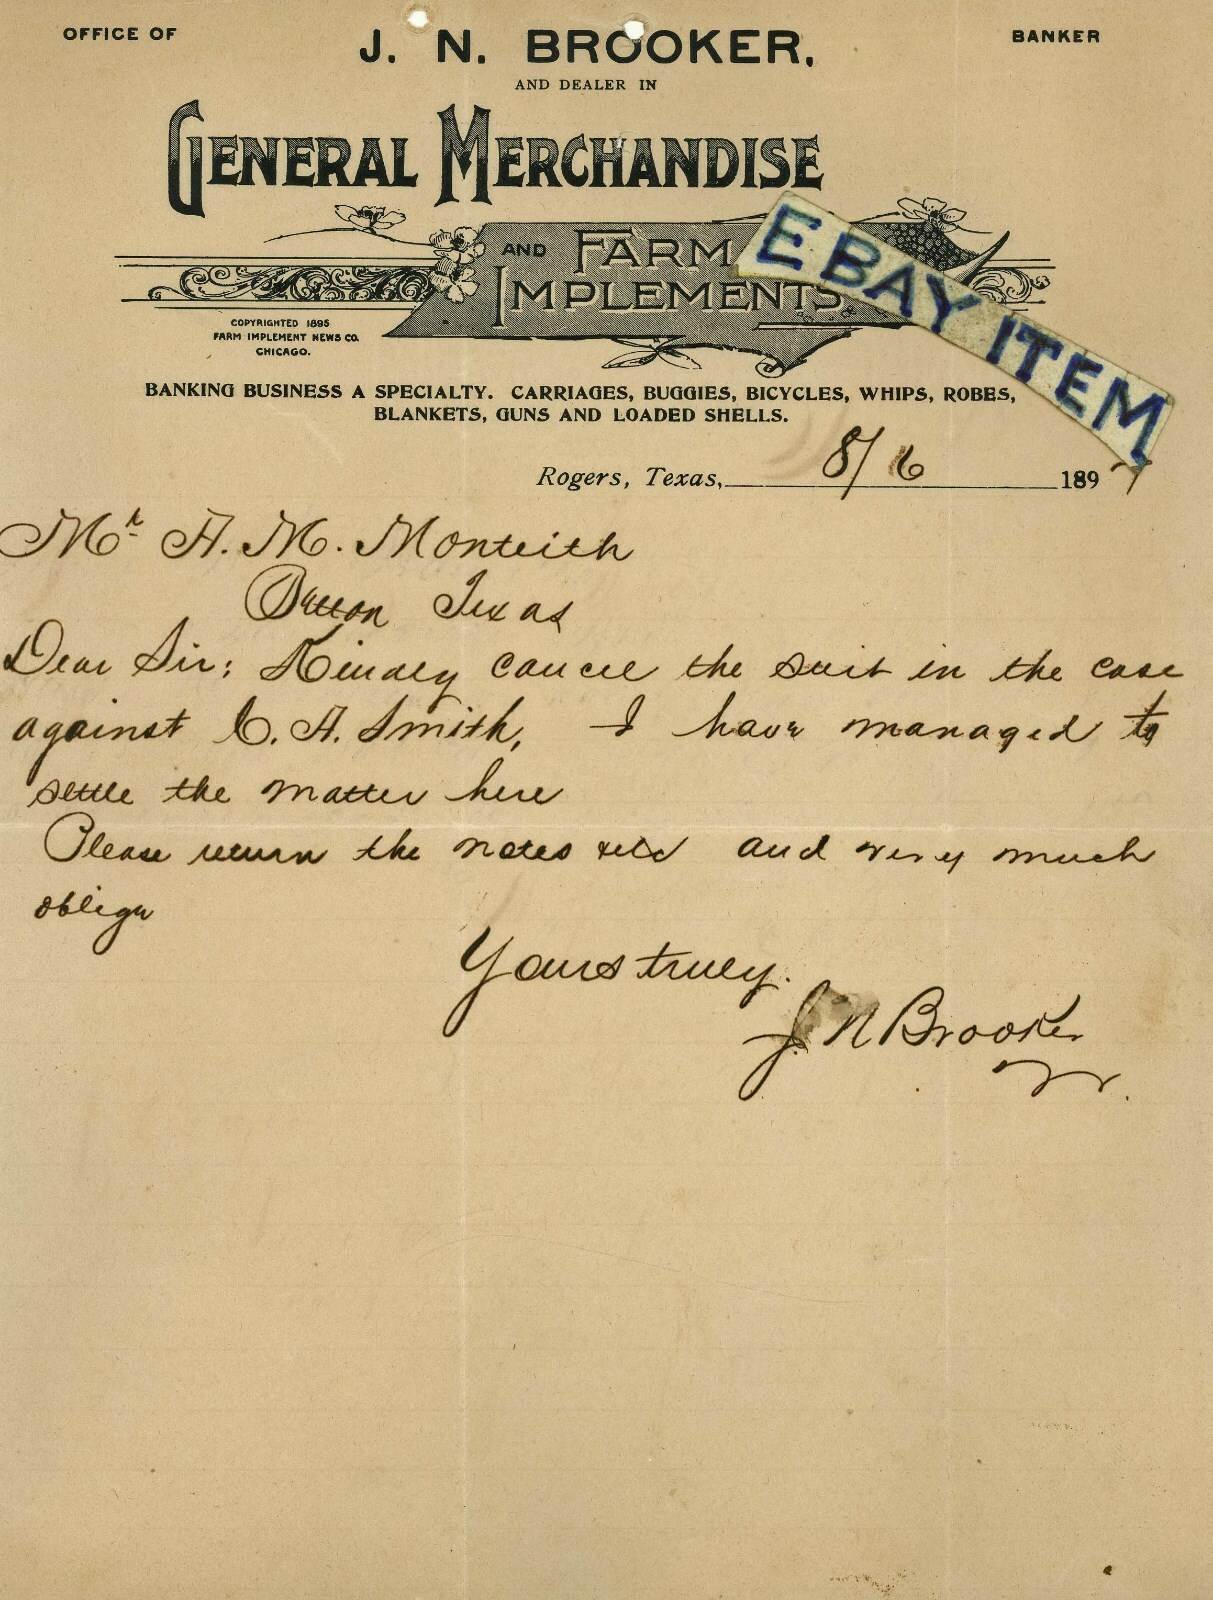 OFFICE OF
J. N. BROOKER,
BANKER
AND DEALER IN
GENERAL MERCHANDISE
AND FARM
IMPLEMENTS
EBAY ITEM
COPYRIGHTED 1895
FARM IMPLEMENT NEWS CO.
CHICAGO.
BANKING BUSINESS A SPECIALTY. CARRIAGES, BUGGIES, BICYCLES, WHIPS, ROBES,
BLANKETS, GUNS AND LOADED SHELLS.
Rogers, Texas, 8/6 1897
Mr A. M. Monteith
Texas
Dear Sir: Kindly cancel the suit in the case
against C. A. Smith, I have managed to
settle the matter here
Please return the notes and very much
oblige
Yours truly.
J. N Brooker